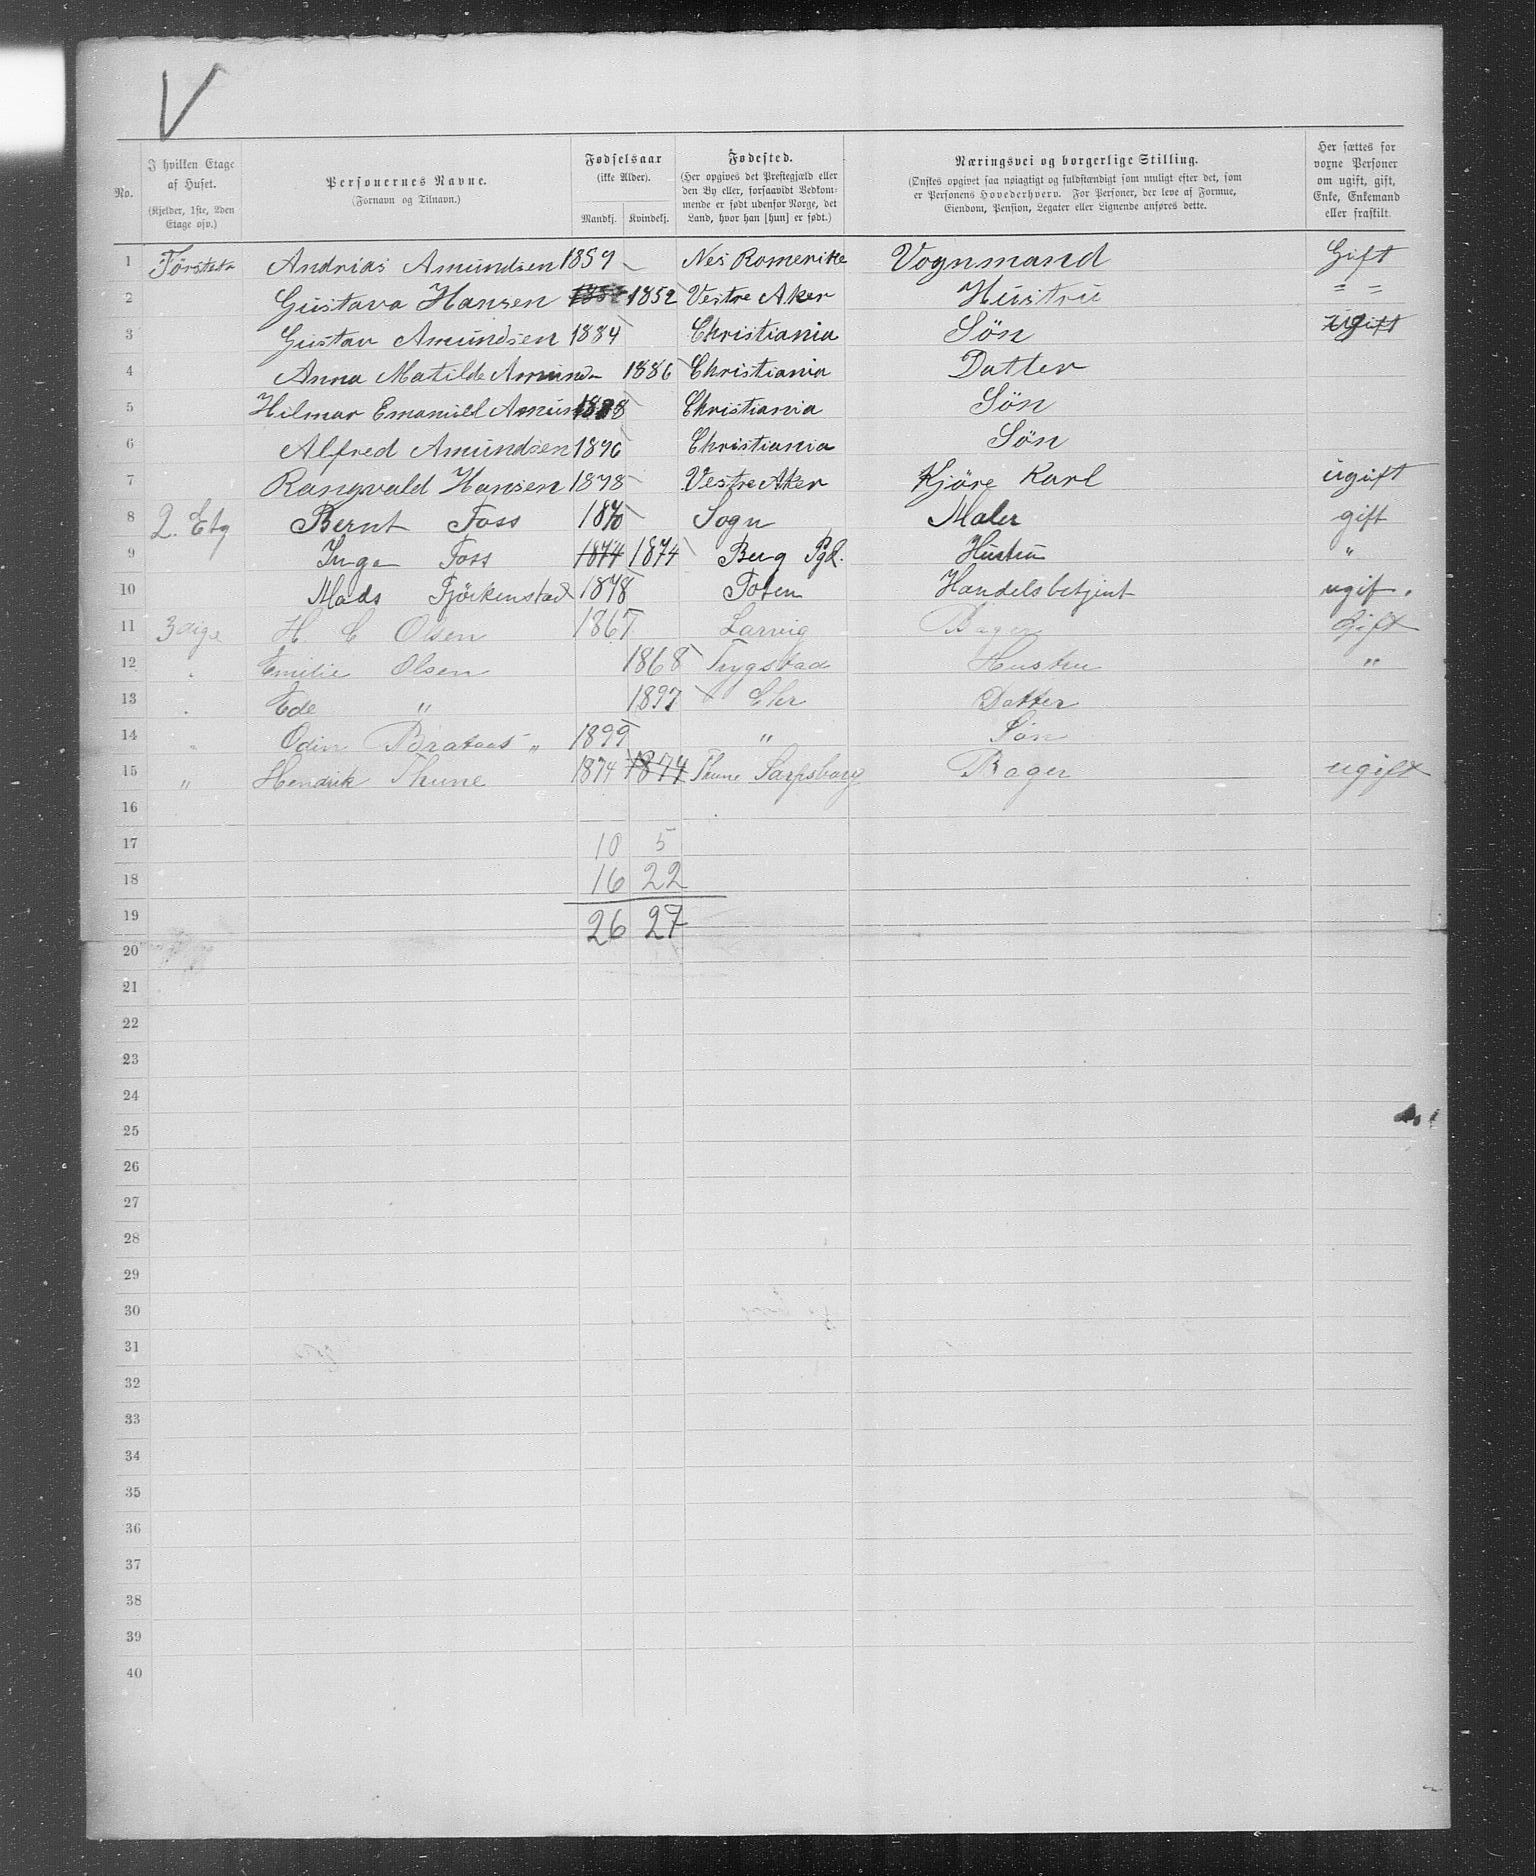 V
No.
I hvilken Etage af Huset.
(Kjelder, 1ste, 2den Etage osv.)
Personernes Navne.
(Fornavn og Tilnavn.)
Fødselsaar
(ikke Alder).
Mandkj. Kvindekj.
Fødested.
(Her opgives det Prestegjæld eller den By eller, forsaavidt Vedkommende er født udenfor Norge, det Land, hvor han [hun] er født.)
Næringsvei og borgerlige Stilling.
(Ønskes opgivet saa nøiagtigt og fuldstændigt som muligt efter det, som er Personens Hovederhverv. For Personer, der leve af Formue, Eiendom, Pension, Legater eller Lignende anføres dette.
Her sættes for voxne Personer om ugift, gift, Enke, Enkemand eller fraskilt.
1 Andrias Amundsen 1859 Nes Romerike Vognmand Gift
2 Gustava Hansen 1852 Vestre Aker Hustru = =
3 Gustav Amundsen 1884 Christiania Søn ugift
4 Anna Matilde Amunds 1886 Christiania Datter
5 Hilmar Emanuel Amun 1888 Christiania Søn
6 Alfred Amundsen 1896 Christiania Søn
7 Rangvald Hansen 1878 Vestre Aker Kjöre Karl ugift
8 2. Etg Bernt Foss 1870 Sogn Maler gift
9 Inga Foss 1874 1874 Berg Pgd. Hustru "
10 Mads 1878 Toten Handelsbetjent ugift.
11 3 H. C Olsen 1867 Larvig Bager Gift
12 " Emilie Olsen 1868 Trygstad Hustru "
13 " Ede " 1897 Chr Datter
14 " Odin " 1899 " Søn
15 " Hendrik Thune 1874 1874 Thune Sarpsborg Bager ugift
16
17 10 5
18 16 22
19 26 27
20
21
22
23
24
25
26
27
28
29
30
31
32
33
34
35
36
37
38
39
40